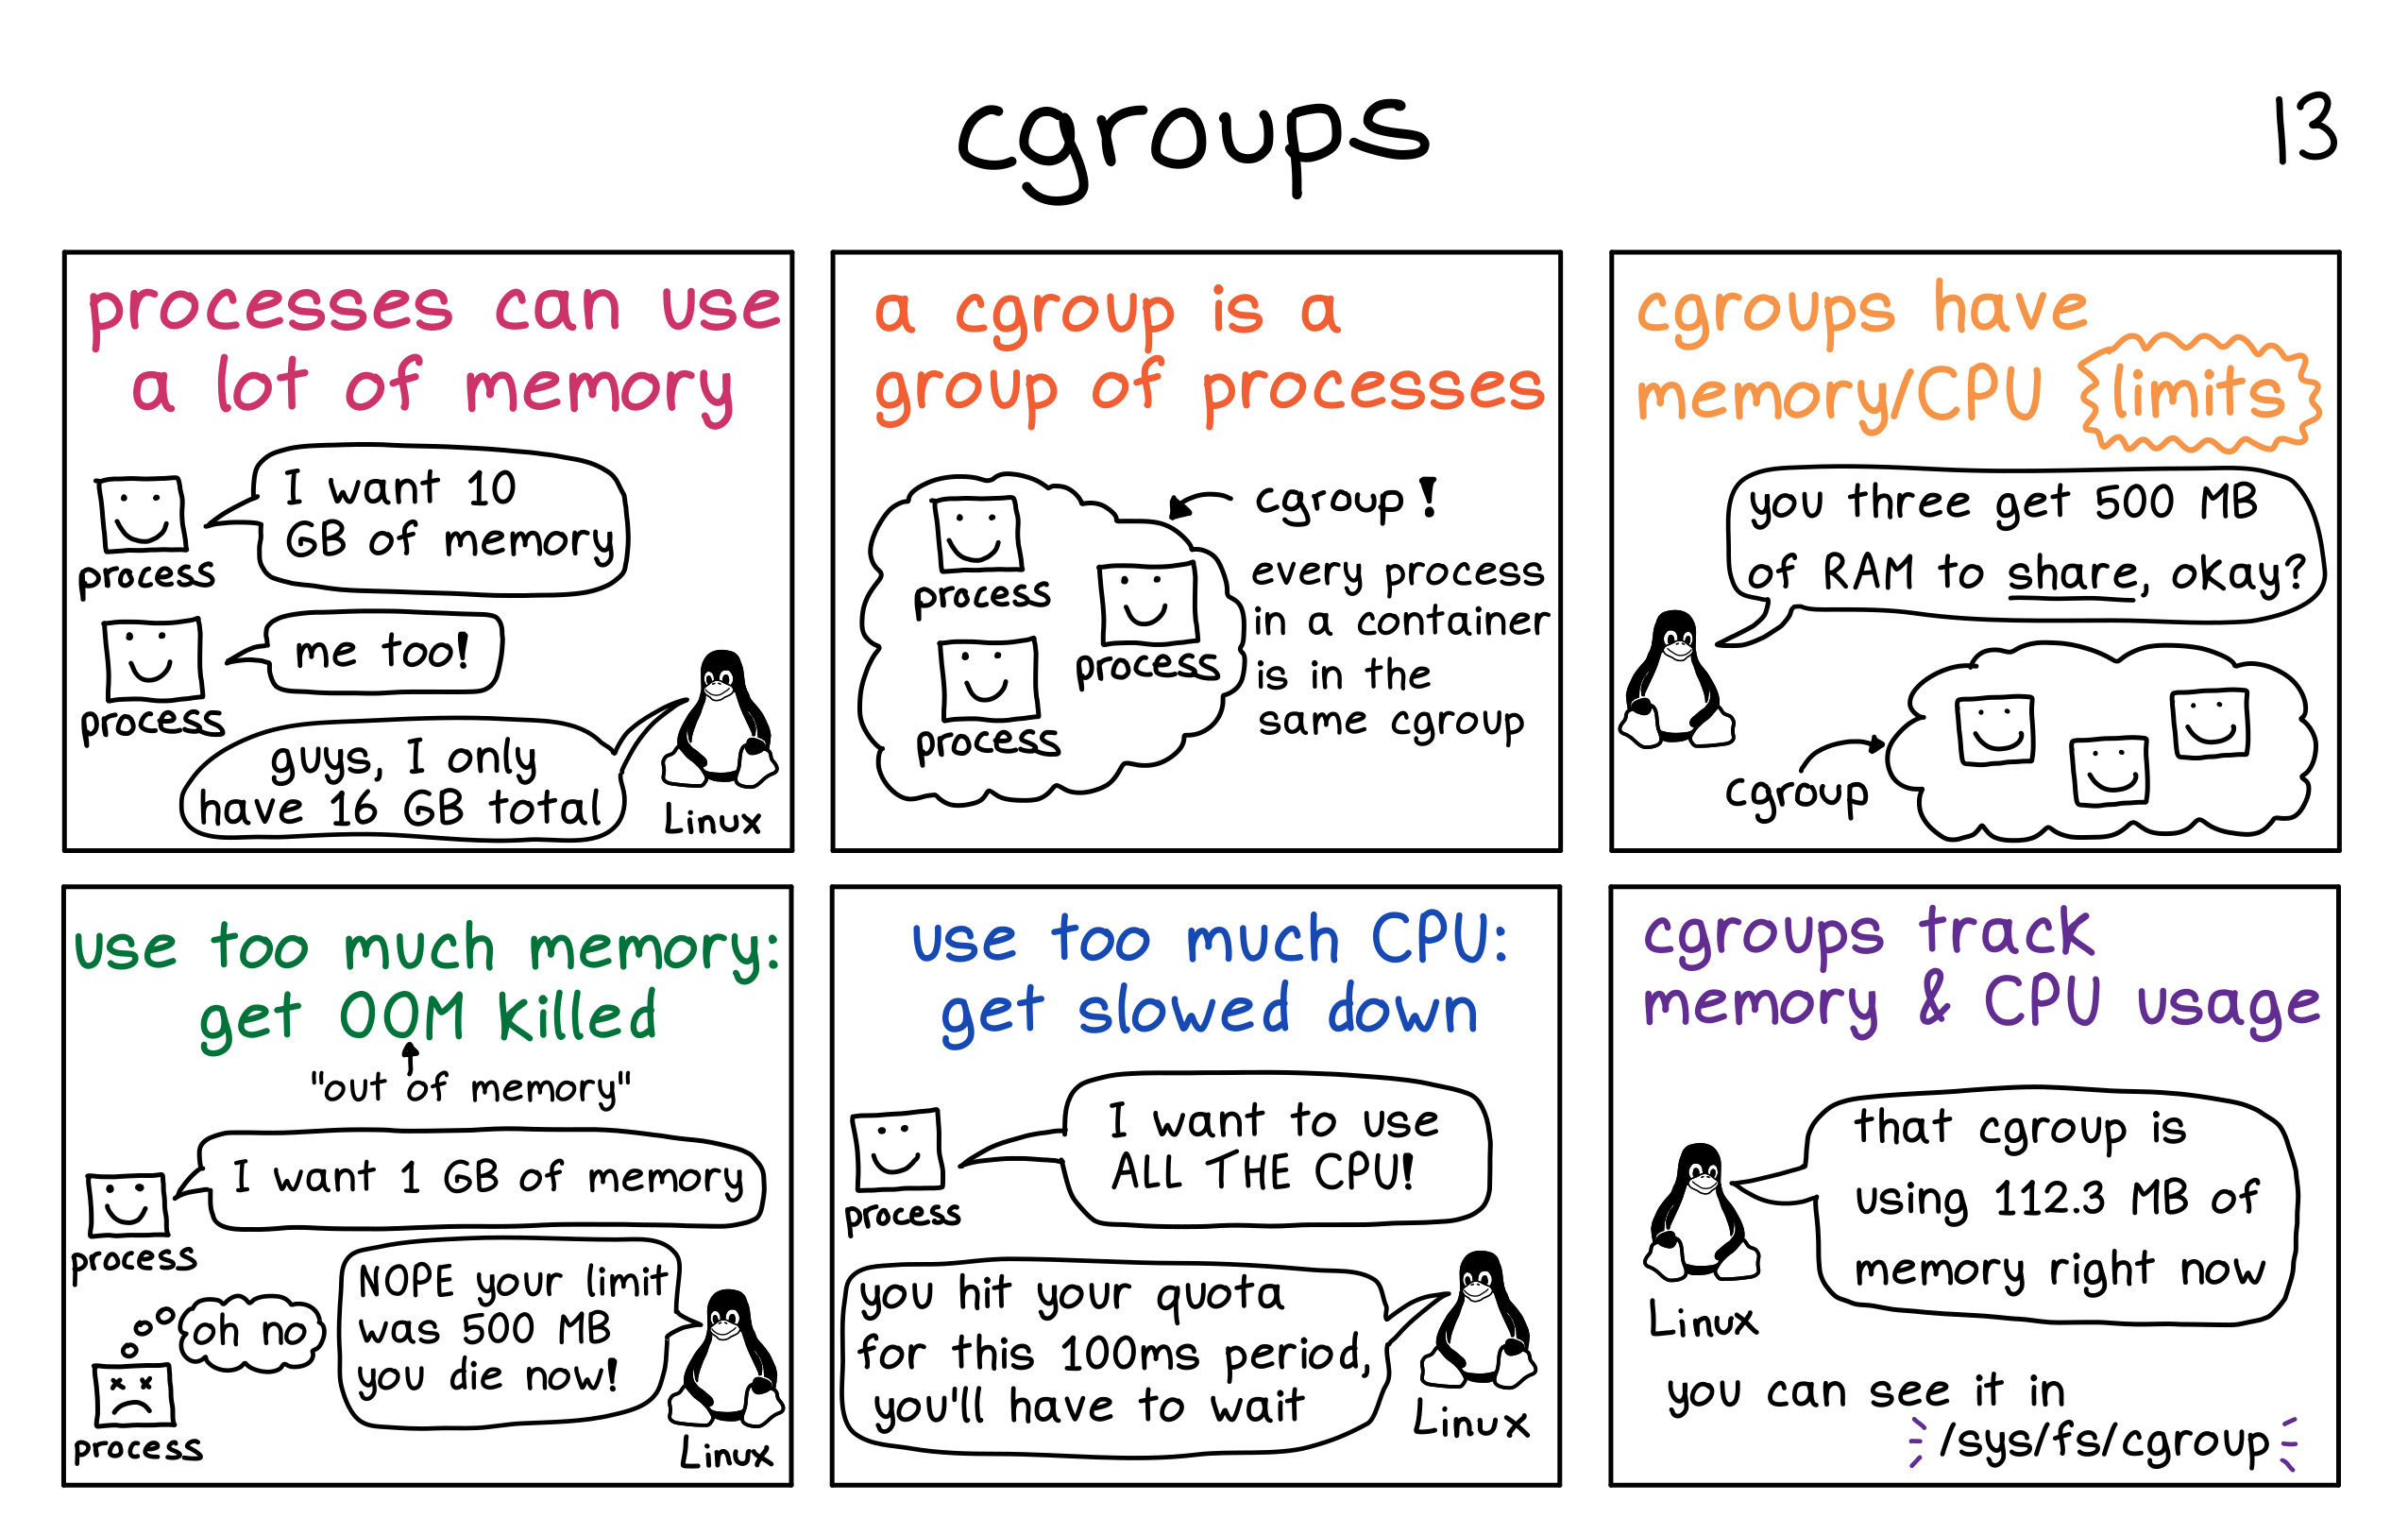 cgroups
13
processes can use
a lot of memory
I want 10
GB of memory
process
me too!
process
guys, I only
have 16 GB total
Linux
a cgroup is a
group of processes
process
process
process
cgroup!
every process
in a container
is in the
same cgroup
cgroups have
memory/CPU limits
you three get 500 MB
of RAM to share, okay?
cgroup
use too much memory:
get OOM killed
"out of memory"
I want 1 GB of memory
process
NOPE your limit
was 500 MB
you die now!
oh no
process
Linux
use too much CPU:
get slowed down
I want to use
ALL THE CPU!
process
you hit your quota
for this 100ms period,
you'll have to wait
Linux
cgroups track
memory & CPU usage
that cgroup is
using 112.3 MB of
memory right now
Linux
you can see it in
/sys/fs/cgroup